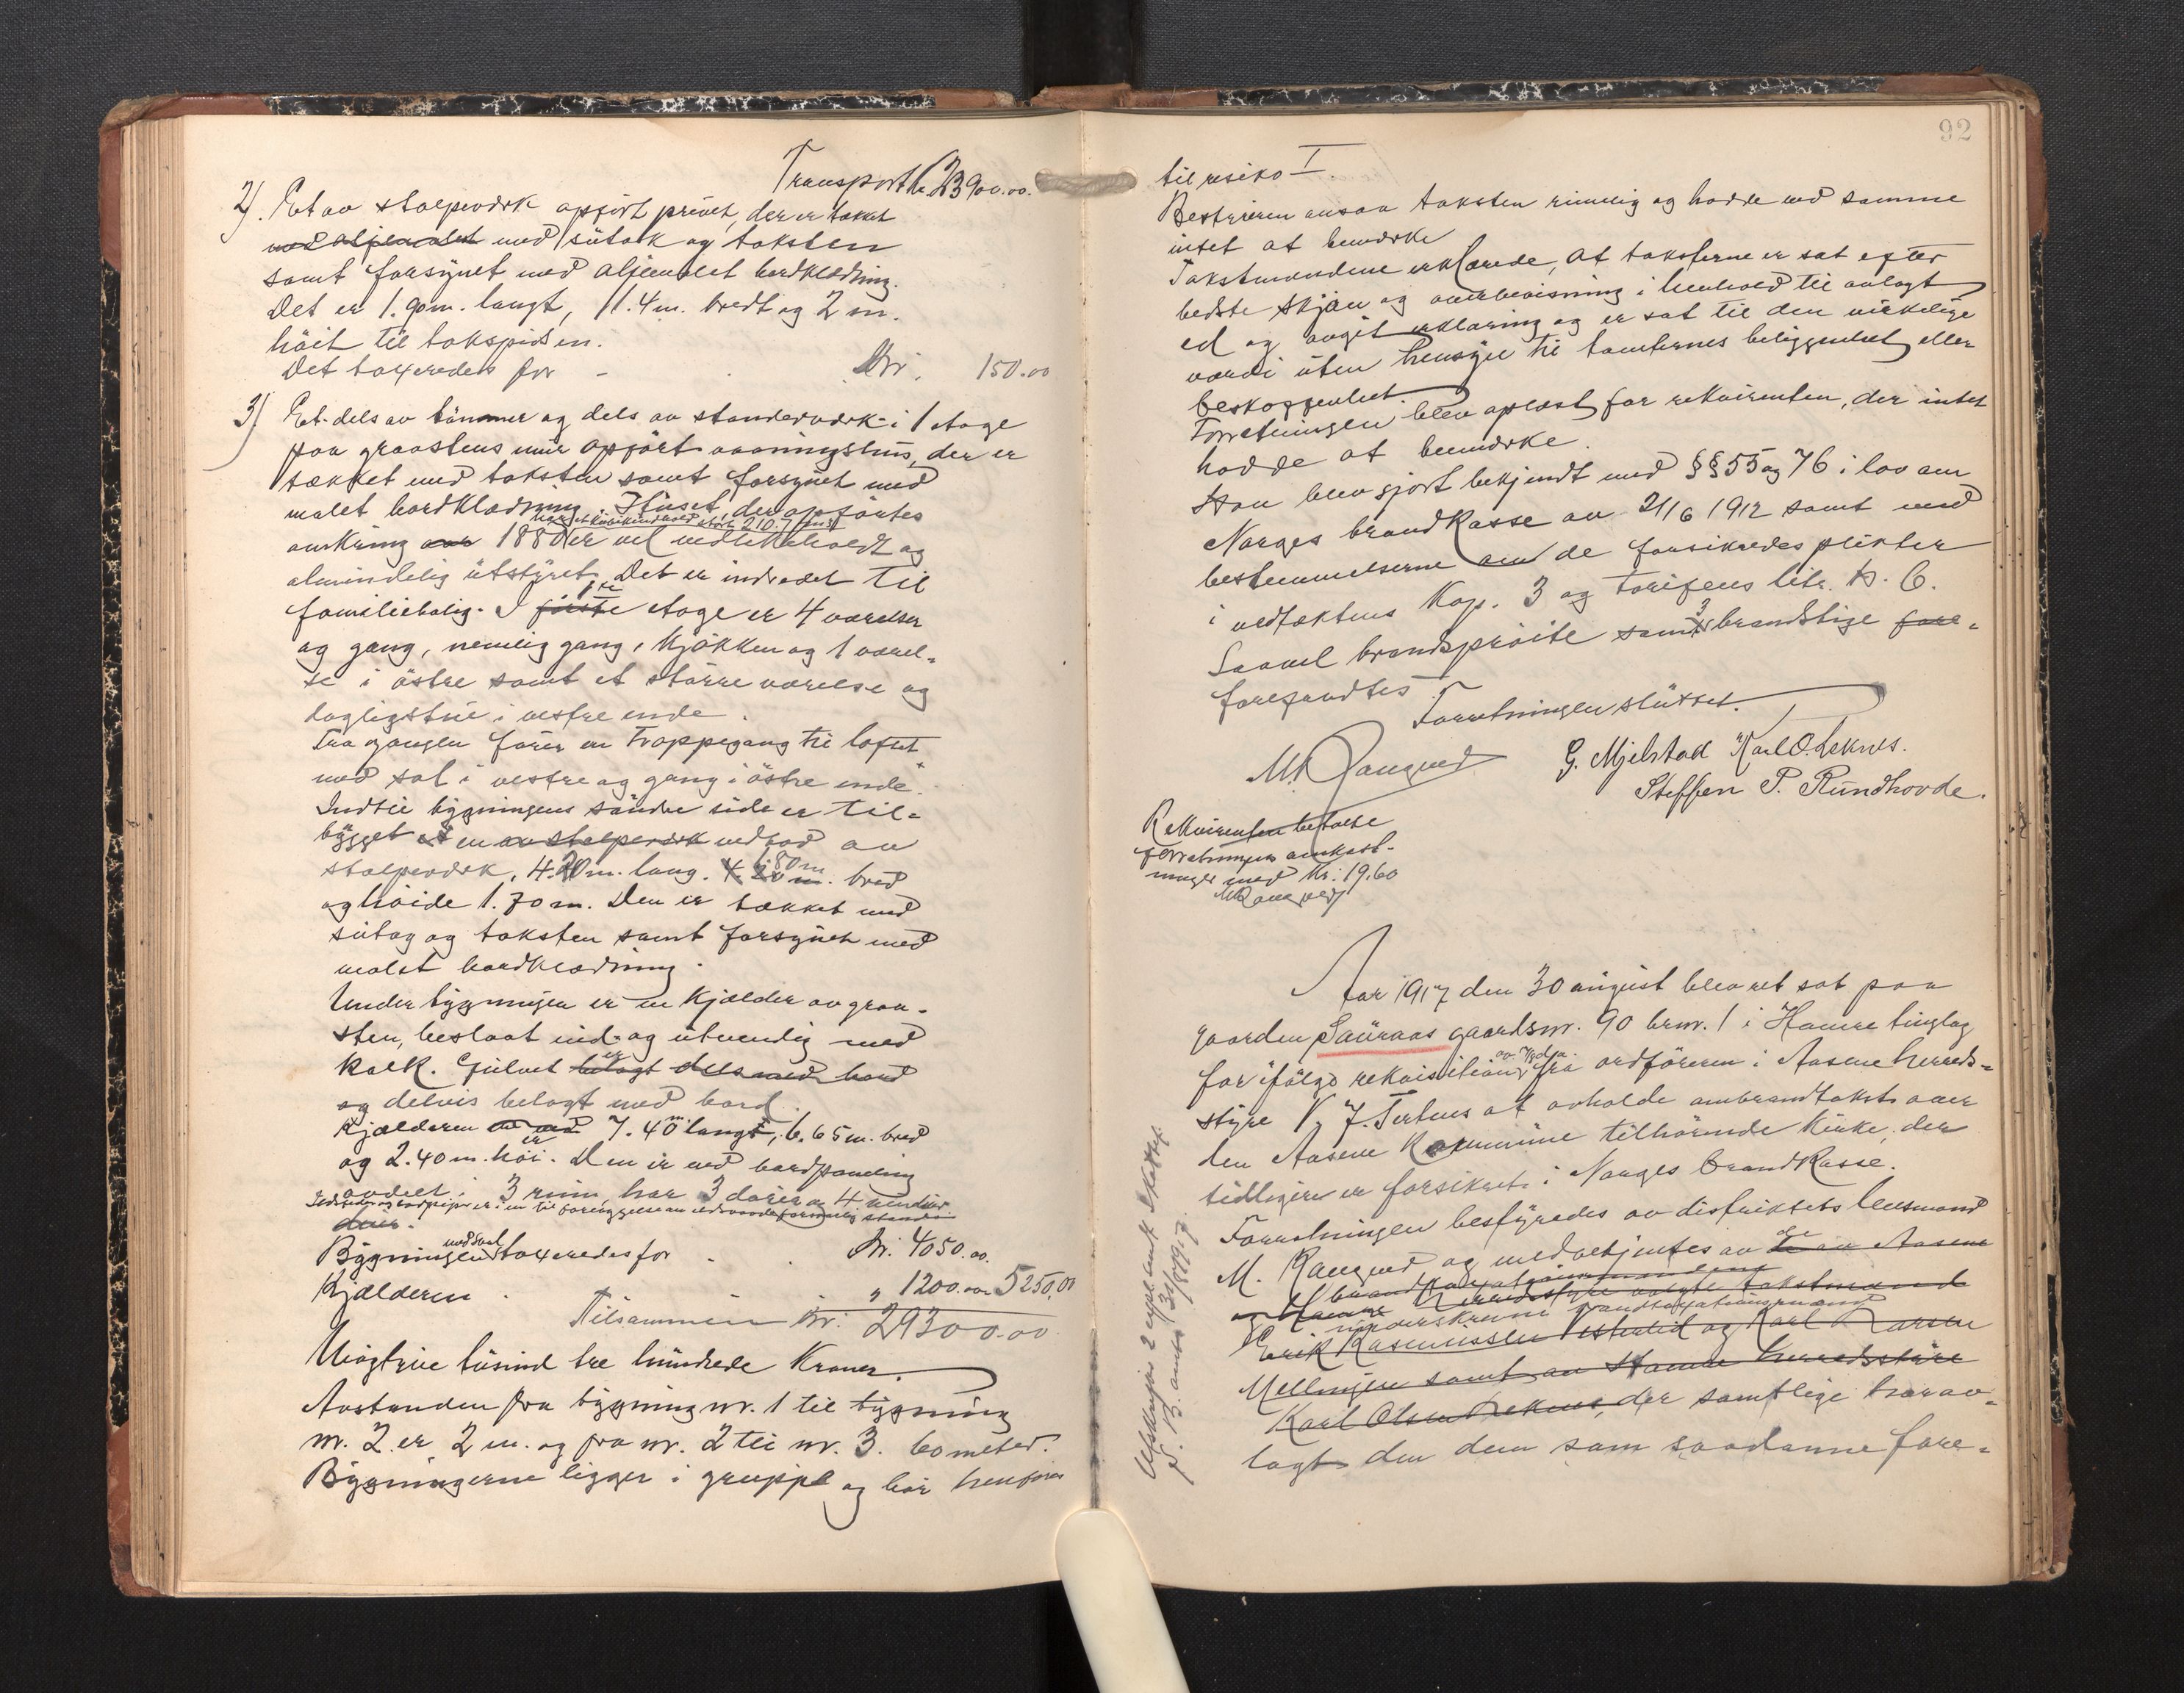 Transport kr 23900.00.
2). Et av stolpeverk opført privet, der er tækket
med oljemalet med sutak og taksten
samt forsynet med oljemalet bordklædning.
Det er 1.90m. langt, 1.4m. bredt og 2 m.
höit til takspidsen.
Det taxeredes for - Kr. 150.00
3) Et dels av tömmer og dels av standerverk i 1 etage
paa graastens mur opfört vaaningshus, der er
tækket med taksten samt forsynet med
malet bordklædning. Huset, der opförtes
omkring aar 1880 er vel vedlikeholdt og
almindelig utstyret. Det er indredet til
familiebolig. I förste 1ste etage er 4 værelser
og gang, nemlig gang, kjökken og 1 værel-
se i östre samt et större værelse og
dagligstue i vestre ende.
Fra gangen förer en trappegang til loftet
med sal i vestre og gang i östre ende.
Indtil bygningens söndre side er til-
bygget et en av stolpeverk vedbod av
stolpeverk, 4.20m. lang. 1.80 m. bred
og höide 1.70m. Den er tækket med
sutag og taksten samt forsynet med
malet bordklædning.
Under bygningen er en kjælder av graa-
sten, beslaat ind- og utvendig med
kalk. Gulvet er belagt dels med bord
og delvis belagt med bord.
Kjælderen er 7.40 m. langt, 6.65m. bred
og 2.40m. höi. Den er ved bordpaneling
avdelt i 3 rum, har 3 dører og 4 vinduer
Bygningen med bod taxeredes for - Kr. 4050.00.
Kjælderen . " 1200.00 5250,00
Tilsammen kr. 29300.00
Niogtyve tusind tre hundrede Kroner.
Avstanden fra bygning nr. 1 til bygning
nr. 2 er 2 m. og fra nr. 2 til nr. 3. 60 meter.
Bygningerne ligger i gruppe og bör henföres
92
til risiko I.
Bestyreren ansaa taksten rimelig og hadde ved samme
intet at bemerke
Takstmændene erklærede, at taksterne er sat efter
bedste skjön og overbevisning i henhold til avlagt
ed og avgit erklæring og er sat til den virkelige
værdi uten hensyn til tomternes beliggenhet eller
beskaffenhet.
Forretningen blev oplæst for rekvirenten, der intet
hadde at bemerke.
Han blev gjort bekjendt med §§ 55 og 76 i lov om
Norges brandkasse av 21/6 1912 samt med
bestemmelserne om de forsikredes plikter
i vedtæktens Kap. 3 og tarifens litr. B. C.
Saavel brandspröite samt 3 brandstige fore-
forefandtes.
Forretningen sluttet.
M. Rangved G. Mjelstad Karl O. Leknes.
Steffen P. Rundhovde.
Rekvirenten betalte
forretningens omkost-
ninger med Kr. 19.60
M Rangved
Aar 1917 den 30 august blev ret sat paa
gaarden Sauraas gaardsnr. 90 brnr. 1 i Hamre tinglag
for ifølge rekvisition fra ordföreren i Aasene herreds-
styre at avholde ombrandtakst over
den Aasene Kommune tilhörende kirke, der
tidligere er forsikret i Norges brandkasse.
Forretningen bestyredes av distriktets lensmand
M. Rangved og medbetjentes av de av Aasene
og Hamre herredsstyre valgte takstmænd
underskrevne brandtaxationsmænd
Erik Rasmussen Vestrelid og Karl Larsen
Mellingen samt av Hamre herredsstyre
Karl Olsen Leknes, der samtlige har av-
lagt den dem som saadanne fore-